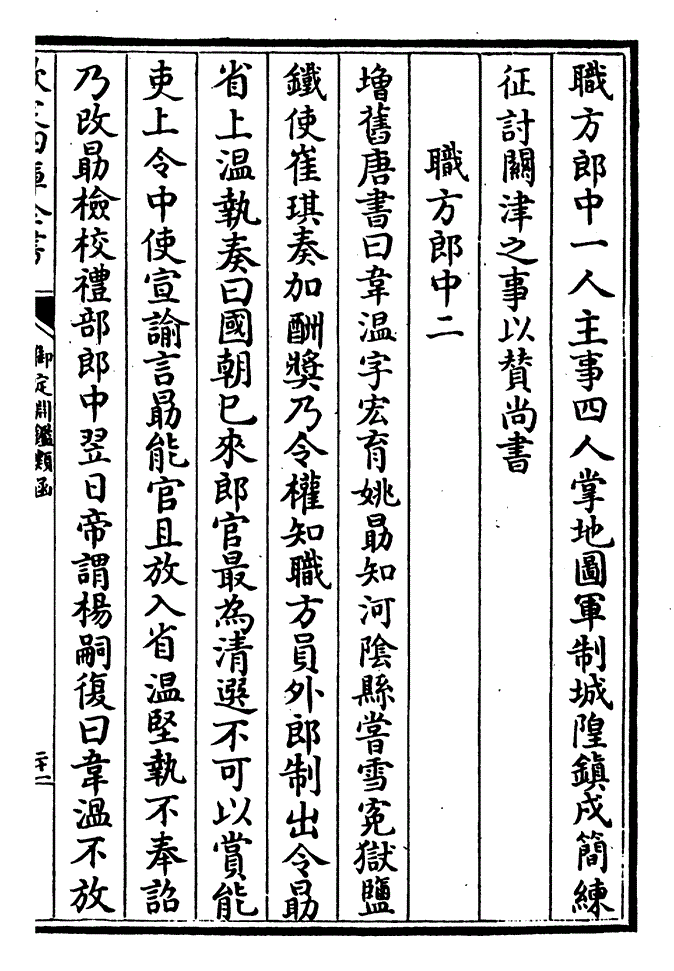 職方郎中一人主事四人掌地圖軍制城隍鎮戍簡練
征討關津之事以贊尚書
職方郎中二
增舊唐書曰韋溫字宏育姚勗知河陰縣嘗雪寃獄鹽
鐵使崔琪奏加酬獎乃令權知職方員外郎制出令勗
省上溫執奏曰國朝已來郎官最為清選不可以賞能
吏上令中使宣諭言勗能官且放入省溫堅執不奉詔
乃改勗檢校禮部郎中翌日帝謂楊嗣復曰韋溫不放
御定淵鑑類函